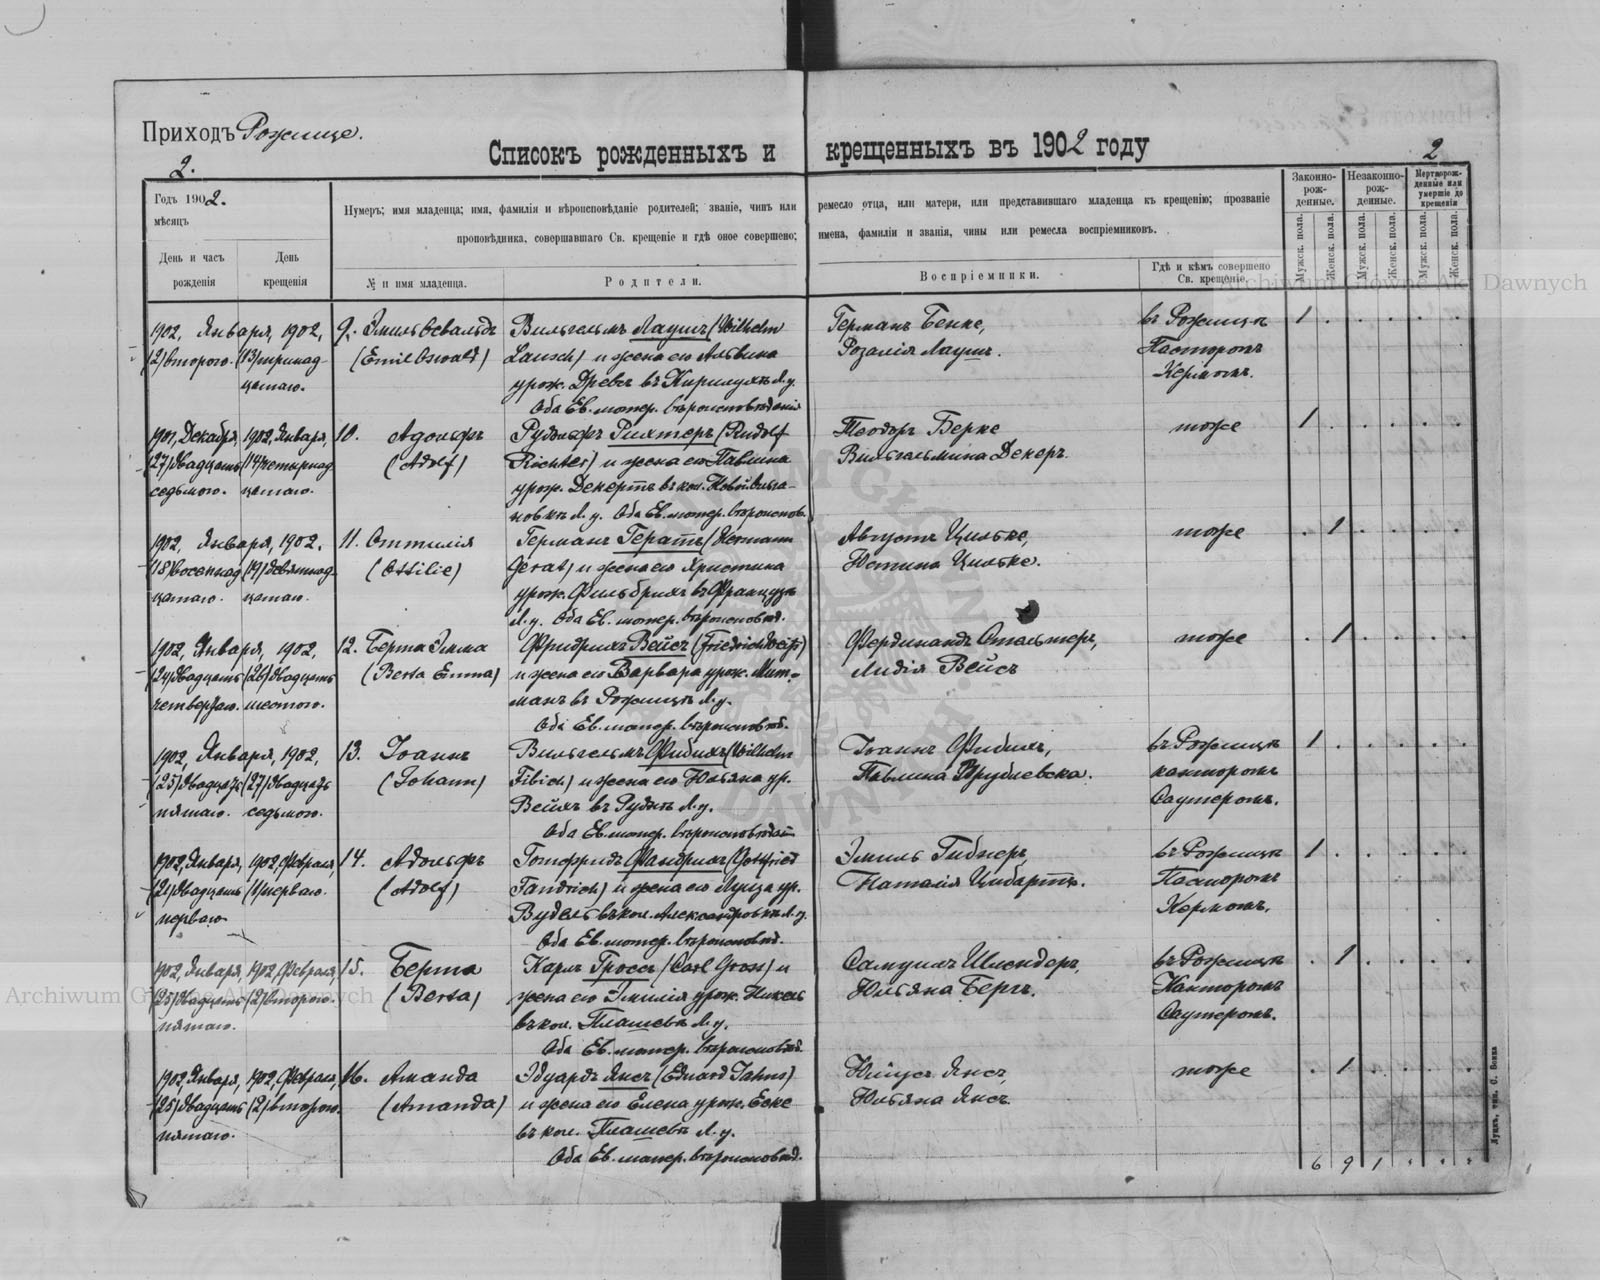 Приходъ Рожище.
2.
Списокъ рожденныхъ и крещенныхъ въ 1902 году
2
Годъ 1902.
мѣсяцъ
День и часъ
рожденія
День
крещенія
Нумеръ; имя младенца; имя, фамилія и вѣроисповѣданіе родителей; званіе, чинъ или
проповѣдника, совершавшаго Св. крещеніе и гдѣ оное совершено;
№ и имя младенца.
Родители.
ремесло отца, или матери, или представившаго младенца къ крещенію; прозваніе
имена, фамиліи и званія, чины или ремесла воспріемниковъ.
Воспріемники.
Гдѣ и кѣмъ совершено
Св. крещеніе.
Законно-
рож-
денные.
Незаконно-
рож-
денные.
Мертворож-
денные или
умершіе до
крещенія
Мужск. пола.
Женск. пола.
Мужск. пола.
Женск. пола.
Мужск. пола.
Женск. пола.
1902, Января, 1902, 9. Эмиль Освальдъ Вильгельмъ Лаушъ (Wilhelm
(2) второго. (13) тринад- (Emil Oswald) Lausch) и жена его Альвина
цатаго. урож. Древсъ въ Л. у.
Оба Ев. лютер. вѣроисповѣданія
Германъ Бенке, въ Рожищѣ 1
Розалія Лаушъ. Пасторомъ
Керномъ.
1901, Декабря, 1902, Января, 10. Адольфъ Рудольфъ Рихтеръ (Rudolf
(27) двадцать (14) четырнад (Adolf) Richter) и жена его Павлина
седьмого. цатаго. урож. Декертъ въ кол.
новкѣ Л. у. Оба Ев. лютер. вѣроисповѣ.
Теодоръ Берке тоже 1
Вильгельмина Декеръ.
1902, Января, 1902. 11. Оттилія Германъ Гератъ (Hermann
(18) восемнад (19) девятнад- (Ottilie) Gerat) и жена его Христина
цатаго. цатаго. урож. Фильбрихъ въ
Л. у. Оба Ев. лютер. вѣроисповѣд.
Августъ Цильке, тоже 1
Юстина Цильке.
1902, Января, 1902, 12. Берта Эмма Фридрихъ Вейсъ (Friedrich Weiß)
(24) двадцать (26) двадцать (Berta Emma) и жена его Варвара урож. Мит-
четвертаго. шестого. манъ въ Рожищѣ Л. у.
Оба Ев. лютер. вѣроисповѣд.
Фердинандъ тоже 1
Лидія Вейсъ
1902, Января, 1902, 13. Іоаннъ Вильгельмъ Фибихъ (Wilhelm
(25) двадцать (27) двадцать (Johann) Fibich) и жена его Юльяна ур.
пятаго. седьмого. въ Л. у.
Оба Ев. лютер. вѣроисповѣдан
Іоаннъ Фибихъ, въ Рожищѣ 1
Павлина Врублевска. канторомъ
Саутеромъ.
1902, Января, 1902, Февраля, 14. Адольфъ Готфридъ Фандрихъ (Gottfried
(21) двадцать (1) перваго. (Adolf) Fandrich) и жена его Луиза ур.
перваго. въ кол. Александровкѣ Л. у.
Оба Ев. лютер. вѣроисповѣд.
Эмиль Гибнеръ, въ Рожищѣ 1
Наталія Цибартъ. Пасторомъ
Керномъ.
1902, Января, 1902, Февраля, 15. Берта Карлъ Гроссъ (Carl Gross) и
(25) двадцать (2) второго. (Berta) жена его Эмилія урож. Никель
пятаго. въ кол. Плашевѣ Л. у.
Оба Ев. лютер. вѣроисповѣд.
Самуилъ въ Рожищѣ 1
Юльяна Бергъ. Канторомъ
Саутеромъ.
1902, Января, 1902, Февраля, 16. Аманда Эдуардъ Янсъ (Eduard Jahns)
(25) двадцать (2) второго. (Amanda) и жена его Елена урож. Еске
пятаго. въ кол. Плашевѣ Л. у.
Оба Ев. лютер. вѣроисповѣд.
Янсъ, тоже 1
Юльяна Янсъ.
6 9 1
Archiwum Główne Akt Dawnych
Archiwum Główne Akt Dawnych